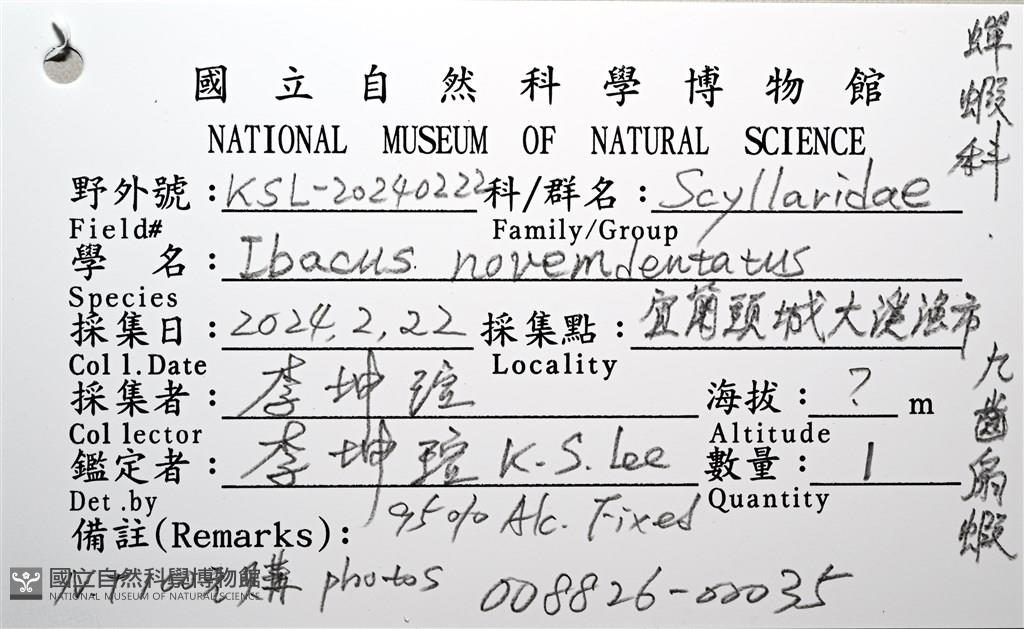 國立自然科學博物館
NATIONAL MUSEUM OF NATURAL SCIENCE
野外號：KSL-20240222 科/群名：Scyllaridae
Field# Family/Group
學 名：Ibacus novemdentatus
Species
採集日：2024,2,22 採集點：宜蘭頭城大溪漁市
Coll.Date Locality
採集者：李坤瑄 海拔：? m
Collector Altitude
鑑定者：李坤瑄 K.S.Lee 數量：1
Det.by Quantity
備註(Remarks)： 95% Alc. Fixed
購 photos 008826-00035
國立自然科學博物館
NATIONAL MUSEUM OF NATURAL SCIENCE
蟬蝦科
九齒扇蝦